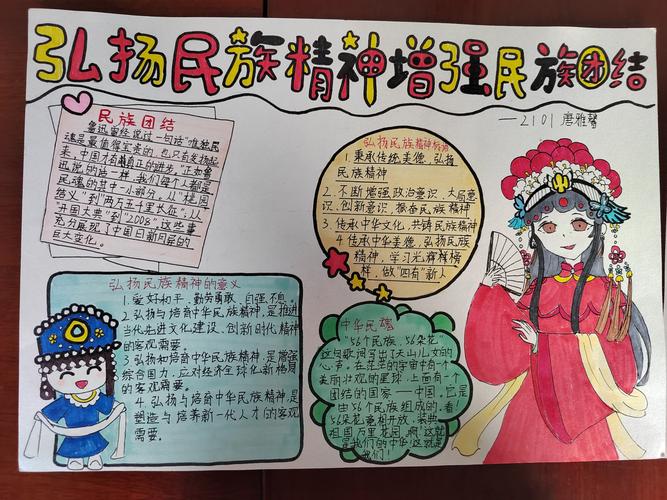 弘扬民族精神增强民族团结
——2101 唐雅馨
民族团结
鲁迅曾经说过一句话"唯独民
魂是最值得宝贵的,也只有发扬起
来,中国才有真正的进步,"正如鲁
迅说的话一样,我们每个人都是
民魂的其中一小部分,从"桃园
结义"到"两万五千里长征",从
"开国大典"到"2008",这些事
充分展现了中国日新月异的
巨大变化。
弘扬民族精神
1.秉承传统美德,弘扬
民族精神
2.不断增强政治意识、大局意
识、创新意识,振奋民族精神
3.传承中华文化,共铸民族精神
4传承中华美德,弘扬民族
精神,学习光辉榜
样,做"四有"新人
弘扬民族精神的意义
1.爱好和平、勤劳勇敢、自强不息。
2.弘扬与培育中华民族精神,是推进
当代先进文化建设,创新时代精神
的客观需要。
3弘扬和培育中华民族精神,是增强
综合国力,应对经济全球化新格局
的客观需要。
4.弘扬与培育中华民族精神,是
塑造与培养新一代人才的客观
需要。
中华民魂
"56个民族,56朵花"
这句歌词写出了天山儿女的
心声。在茫茫的宇宙中有一个
美丽壮观的星球,上面有一个
团结的国家——中国,它是
由56个民族组成的,看!
56朵花竞相开放,装典
祖国万里花园,啊!这就
是我们的中华这就是
我们!